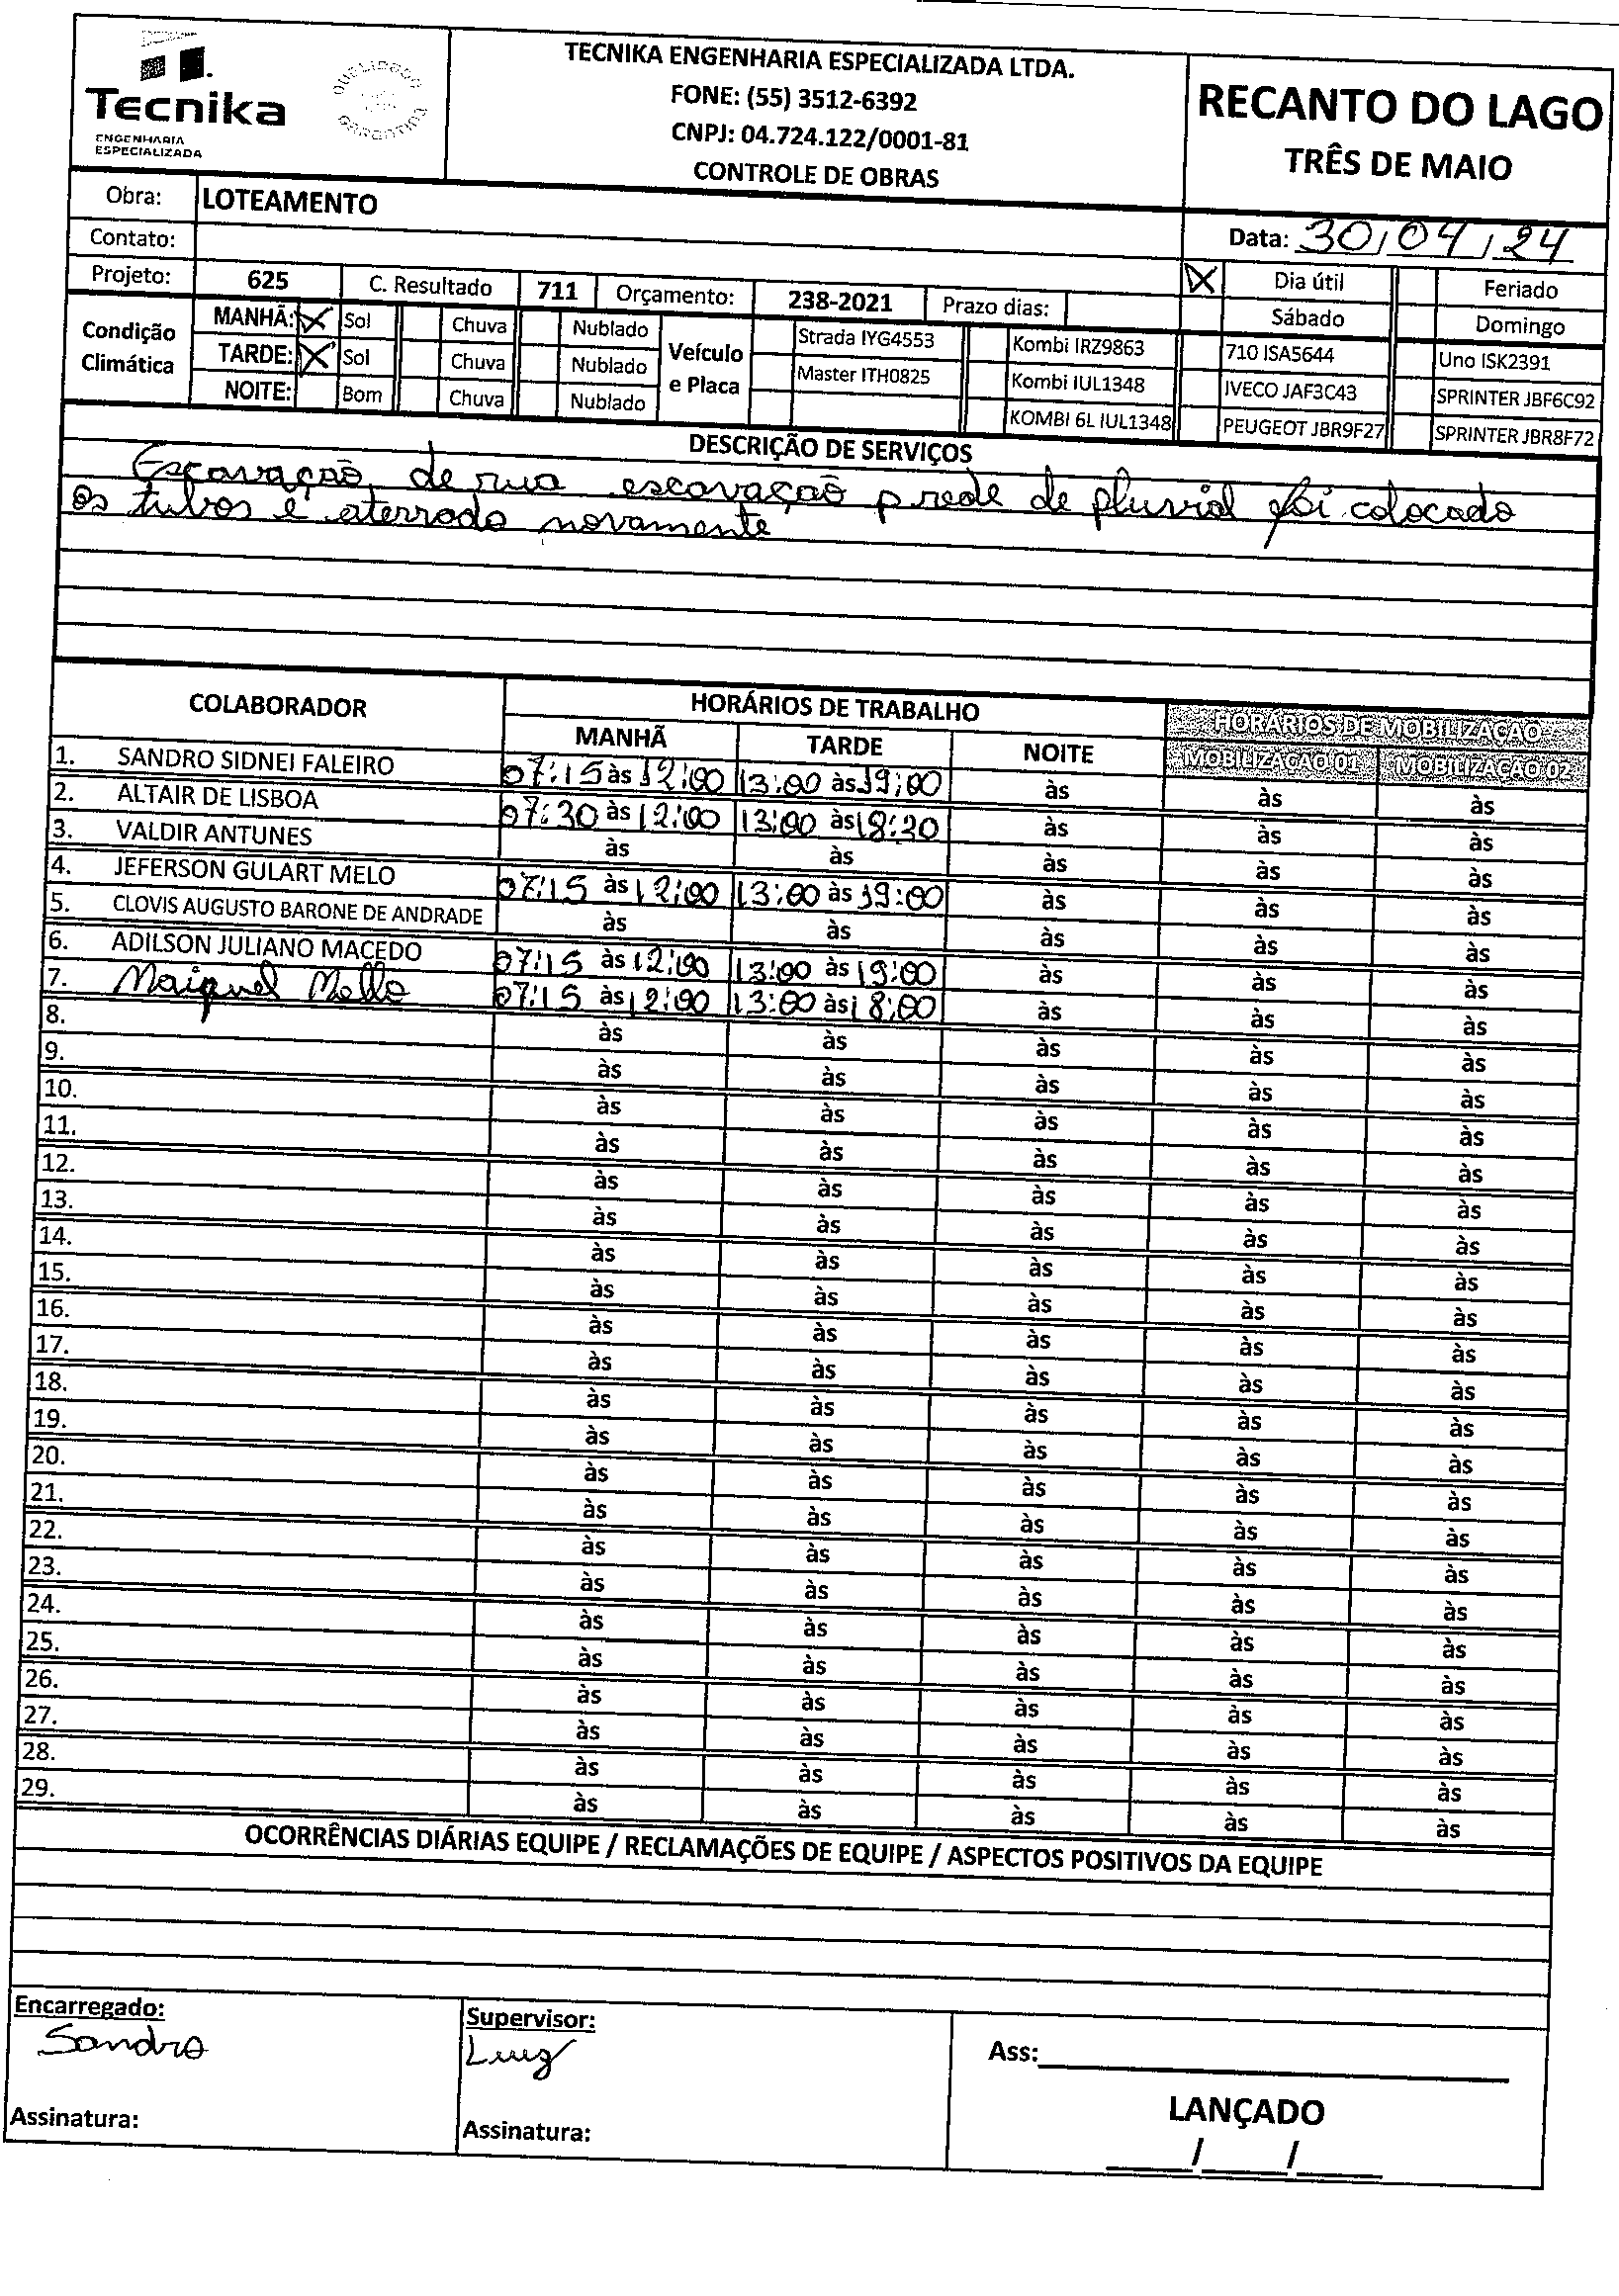 Tecnika
ENGENHARIA
ESPECIALIZADA
QUALIDADE
GARANTIDA
TECNIKA ENGENHARIA ESPECIALIZADA LTDA.
FONE: (55) 3512-6392
CNPJ: 04.724.122/0001-81
CONTROLE DE OBRAS
RECANTO DO LAGO
TRÊS DE MAIO
Obra: LOTEAMENTO
Contato:
Data: 30/04/24
Projeto: 625 C. Resultado 711 Orçamento: 238-2021 Prazo dias:
X Dia útil Feriado
Sábado Domingo
Condição Climática
MANHÃ: X Sol Chuva Nublado
TARDE: X Sol Chuva Nublado
NOITE: Bom Chuva Nublado
Veículo e Placa
Strada IYG4553 Kombi IRZ9863 710 ISA5644 Uno ISK2391
Master ITH0825 Kombi IUL1348 IVECO JAF3C43 SPRINTER JBF6C92
KOMBI 6L IUL1348 PEUGEOT JBR9F27 SPRINTER JBR8F72
DESCRIÇÃO DE SERVIÇOS
Escavação de rua escavação p rede de pluvial foi colocado
os tubos e aterrado novamente
COLABORADOR HORÁRIOS DE TRABALHO HORÁRIOS DE MOBILIZAÇÃO
MANHÃ TARDE NOITE MOBILIZAÇÃO 01 MOBILIZAÇÃO 02
1. SANDRO SIDNEI FALEIRO 07:15 às 12:00 13:00 às 19:00 às às às
2. ALTAIR DE LISBOA 07:30 às 12:00 13:00 às 18:30 às às às
3. VALDIR ANTUNES às às às às às
4. JEFERSON GULART MELO 07:15 às 12:00 13:00 às 19:00 às às às
5. CLOVIS AUGUSTO BARONE DE ANDRADE às às às às às
6. ADILSON JULIANO MACEDO 07:15 às 12:00 13:00 às 19:00 às às às
7. Maiquel Mello 07:15 às 12:00 13:00 às 18:00 às às às
8. às às às às às
9. às às às às às
10. às às às às às
11. às às às às às
12. às às às às às
13. às às às às às
14. às às às às às
15. às às às às às
16. às às às às às
17. às às às às às
18. às às às às às
19. às às às às às
20. às às às às às
21. às às às às às
22. às às às às às
23. às às às às às
24. às às às às às
25. às às às às às
26. às às às às às
27. às às às às às
28. às às às às às
29. às às às às às
OCORRÊNCIAS DIÁRIAS EQUIPE / RECLAMAÇÕES DE EQUIPE / ASPECTOS POSITIVOS DA EQUIPE
Encarregado:
Sandro
Assinatura:
Supervisor:
Luiz
Assinatura:
Ass:
LANÇADO
/ /